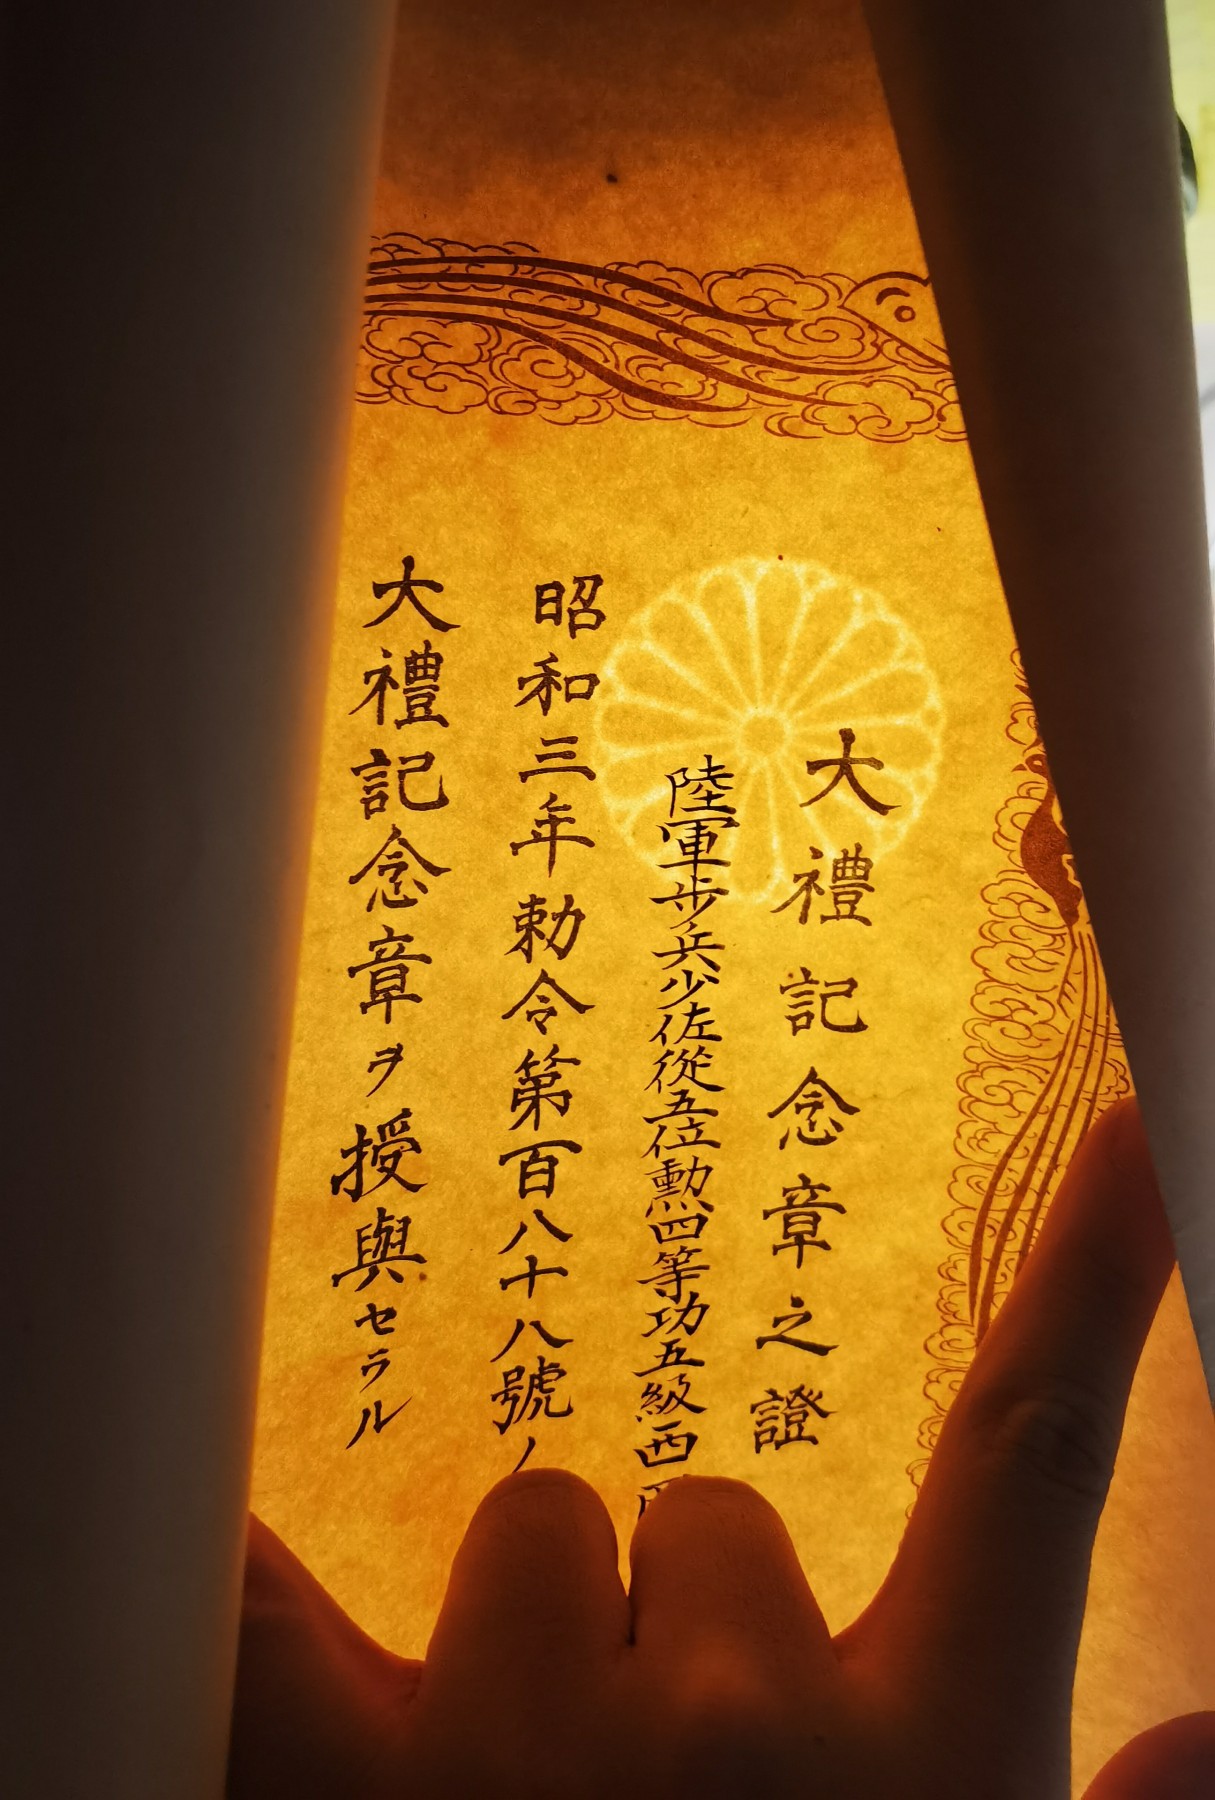 大禮記念章之證
陸軍步兵少佐從五位勲四等功五級西
昭和三年勅令第百八十八號ノ
大禮記念章ヲ授與セラル